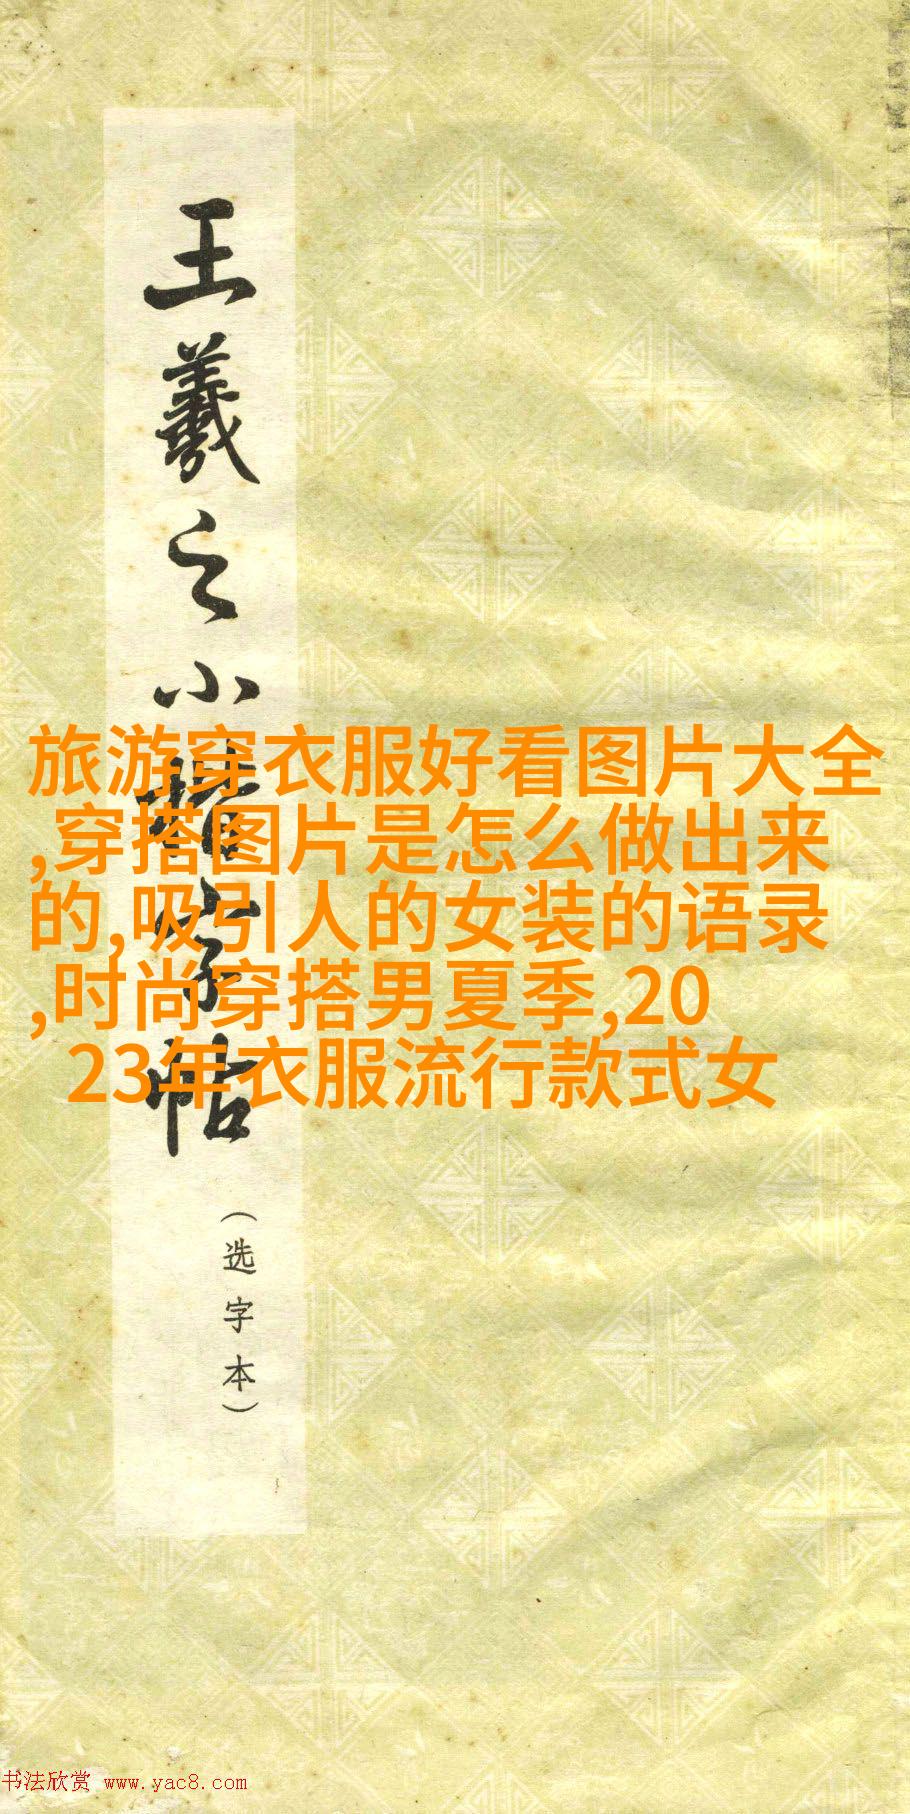 王羲之小楷字帖
（选字本）
旅游穿衣服好看图片大全
,穿搭图片是怎么做出来
的,吸引人的女装的语录
,时尚穿搭男夏季,20
23年衣服流行款式女
书法欣赏 www.yac8.com